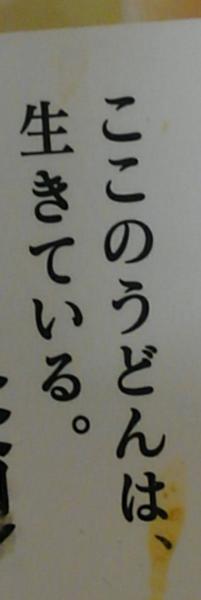 ここのうどんは、
生きている。